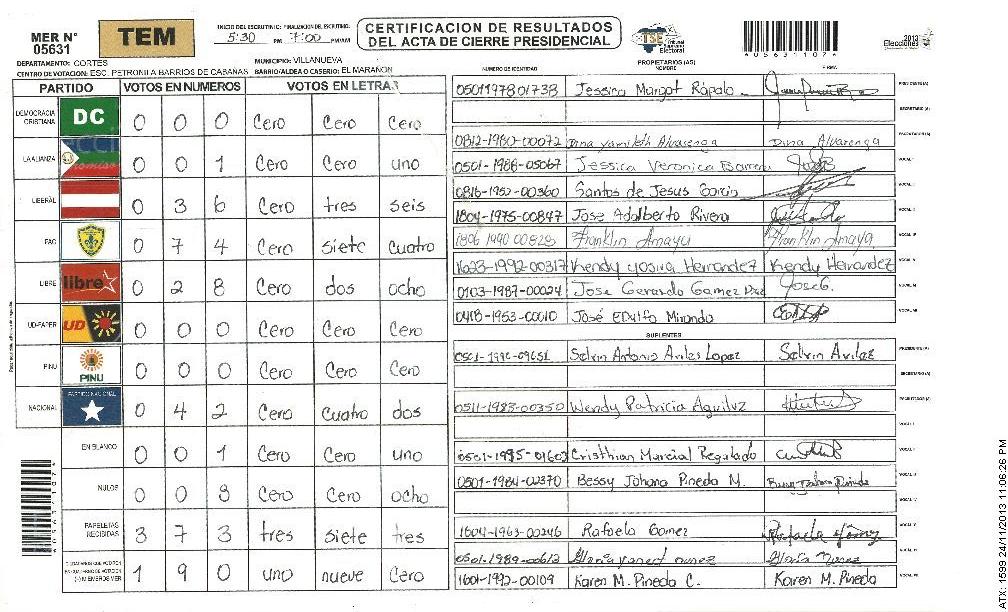 MER N° 05631
TEM
INICIO DEL ESCRUTINIO: FINALIZACION DEL ESCRUTINIO:
5:30 PM 7:00 PM/AM
CERTIFICACION DE RESULTADOS
DEL ACTA DE CIERRE PRESIDENCIAL
TSE Tribunal Supremo Electoral
0563111074
2013 Elecciones
DEPARTAMENTO: CORTES MUNICIPIO: VILLANUEVA
CENTRO DE VOTACION: ESC. PETRONILA BARRIOS DE CABAÑAS BARRIO/ALDEA O CASERIO: EL MARAÑON
PARTIDO VOTOS EN NUMEROS VOTOS EN LETRAS
DEMOCRACIA CRISTIANA DC 0 0 0 Cero Cero Cero
LA ALIANZA 0 0 1 Cero Cero uno
LIBERAL 0 3 6 Cero tres seis
PAC 0 7 4 Cero siete cuatro
LIBRE libre 0 2 8 Cero dos ocho
UD-FAPER UD 0 0 0 Cero Cero Cero
PINU PINU 0 0 0 Cero Cero Cero
NACIONAL PARTIDO NACIONAL 0 4 2 Cero Cuatro dos
EN BLANCO 0 0 1 Cero Cero uno
NULOS 0 0 8 Cero Cero ocho
PAPELETAS RECIBIDAS 3 7 3 tres siete tres
CIUDADANOS QUE VOTARON EN CUADERNO DE VOTACION (+) MIEMBROS MER 1 9 0 uno nueve Cero
NUMERO DE IDENTIDAD PROPIETARIOS (AS) NOMBRE FIRMA
0501197801738 Jessica Margot Rápalo PRESIDENTE(A)
SECRETARIO (A)
0812-1980-00072 Dina Yamileth Alvarenga Dina Alvarenga ESCRUTADOR (A)
0501-1988-05067 Jessica Veronica Barrera VOCAL I
0816-1952-00360 Santos de Jesus Garcia VOCAL II
1804-1975-00847 Jose Adalberto Rivera VOCAL III
1806 1990 00828 Franklin Amaya Franklin Amaya VOCAL IV
1623-1992-00317 Kendy Yosira Hernandez Kendy Hernandez VOCAL V
0103-1987-00024 Jose Gerardo Gamez Diaz Jose G. VOCAL VI
0418-1953-00010 José Edulfo Miranda VOCAL VII
SUPLENTES
Selvin Antonio Aviles Lopez Selvin Aviles PRESIDENTE (A)
SECRETARIO (A)
0511-1983-00350 Wendy Patricia Aguiluz ESCRUTADOR (A)
VOCAL I
0501-1985-01603 Cristhian Murcial Regalado VOCAL II
0501-1984-02370 Bessy Johana Pineda M. Bessy Johana Pineda VOCAL III
VOCAL IV
1604-1963-00246 Rafaela Gomez Rafaela Gómez VOCAL V
0501-1989-00612 Gloria Yaneth nunez Gloria Nunez VOCAL VI
1601-1992-00109 Karen M. Pineda C. Karen M. Pineda VOCAL VII
ATX: 1599 24/11/2013 11:06:26 PM